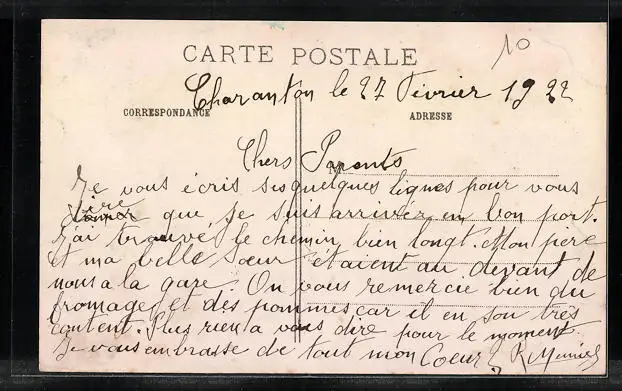 10
CARTE POSTALE
Charanton le 27 Février 1922
CORRESPONDANCE
ADRESSE
Chers Parents
M
Je vous écris ses quelques lignes pour vous
dire que je suis arrivér en bon port.
J'ai trouvé le chemin bien longt. Mon père
et ma belle sœur étaient au devant de
nous a la gare. On vous remercie bien du
fromage et des pommes car il en son très
content. Plus rien a vous dire pour le moment.
Je vous embrasse de tout mon Coeur